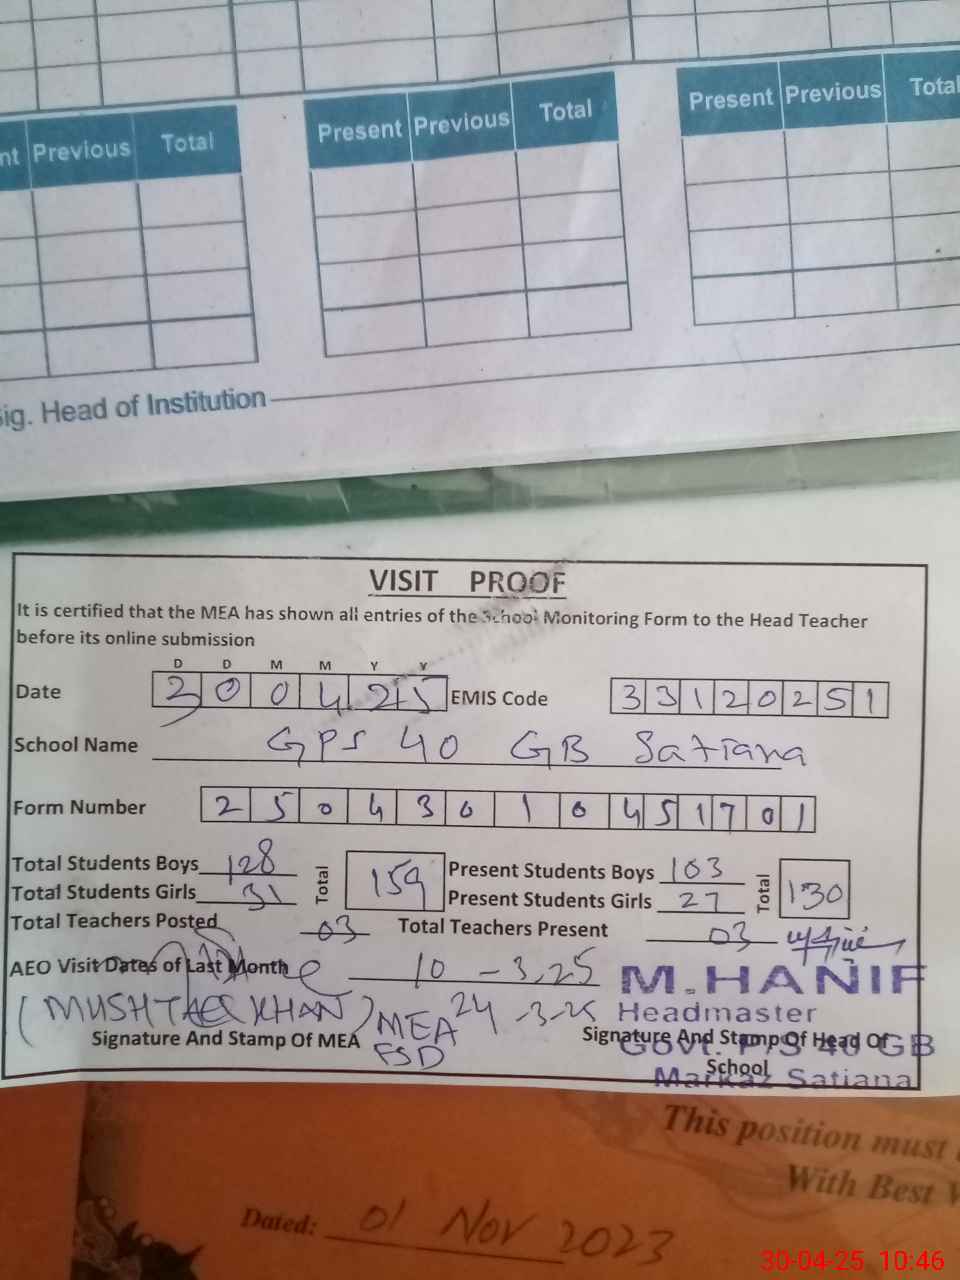 nt Previous Total
Present Previous Total
Present Previous Total
Sig. Head of Institution
VISIT PROOF
It is certified that the MEA has shown all entries of the School Monitoring Form to the Head Teacher
before its online submission
D D M M Y Y
Date 300425 EMIS Code 33120251
School Name GPS 40 GB Satiana
Form Number 25043010451701
Total Students Boys 128 Total 159 Present Students Boys 103 Total 130
Total Students Girls 31 Present Students Girls 27
Total Teachers Posted 03 Total Teachers Present 03
AEO Visit Dates of Last Month 10-3.25
24-3-25
(MUSHTAQ KHAN) MEA
FSD
Signature And Stamp Of MEA
M.HANIF
Headmaster
Signature And Stamp Of Head Of
School
Govt. P/S 40 GB
Markaz Satiana
This position must
With Best
Dated: 01 Nov 2023
30-04-25 10:46